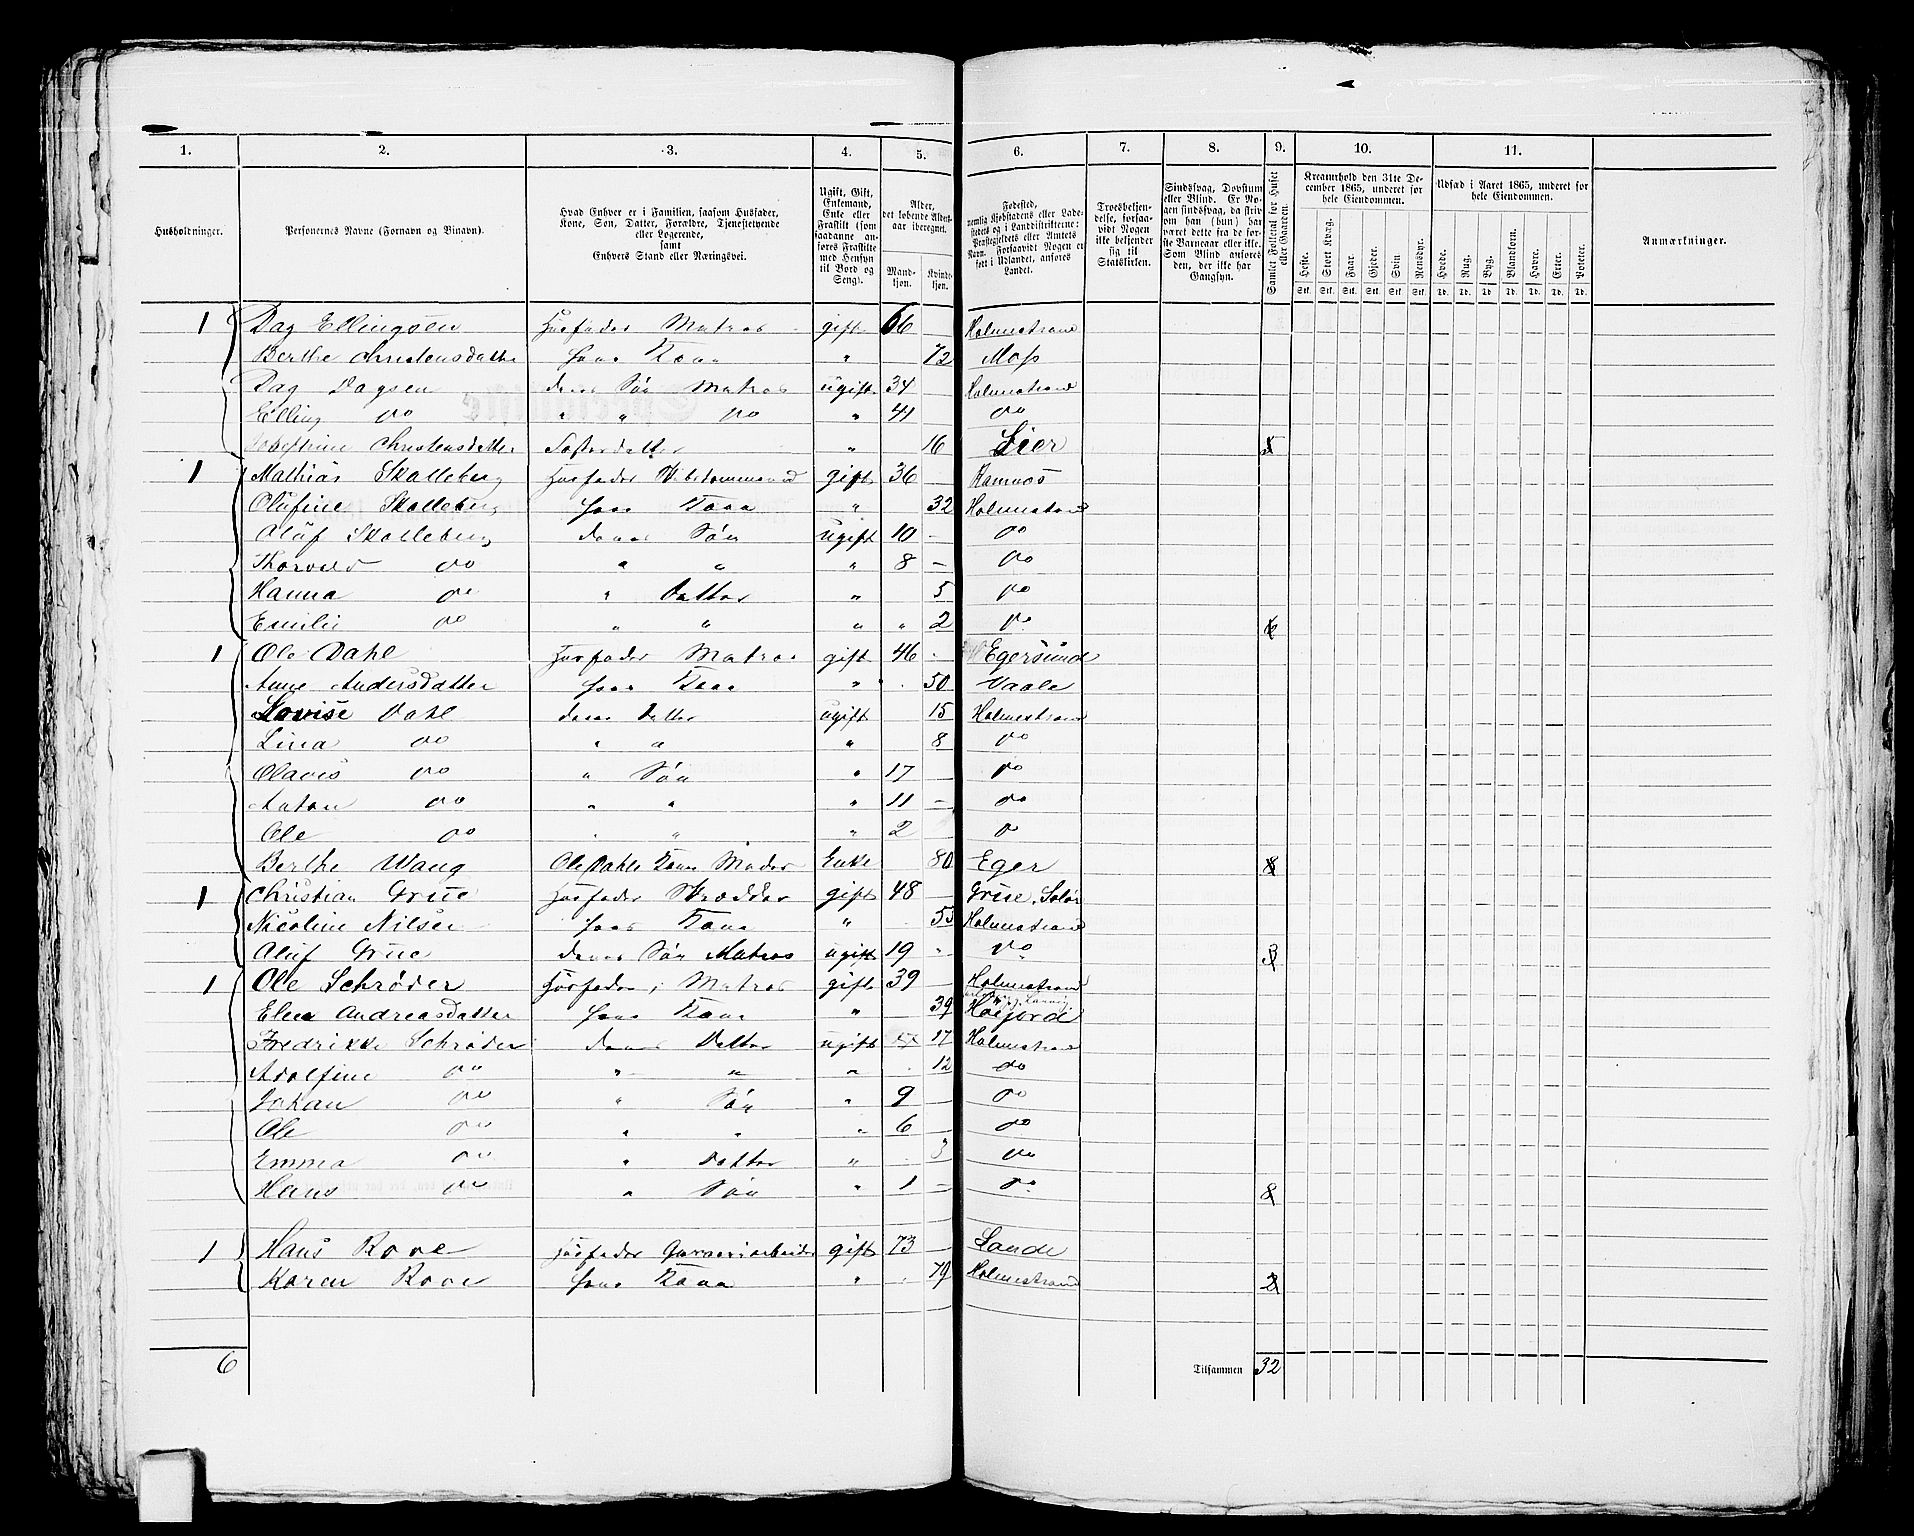 1. 2. 3. 4. 5. 6. 7. 8. 9. 10. 11.
Husholdninger.
Personernes Navne (Fornavn og Binavn).
Hvad Enhver er i Familien, saasom Husfader, Kone, Søn, Datter, Forældre, Tjenestetyende eller Logerende, samt Enhvers Stand eller Næringsvei.
Ugift, Gift, Enkemand, Enke eller Fraskilt (som saadanne anføres Fraskilte med Hensyn til Bord og Seng).
Alder, det løbende Alders-aar iberegnet.
Mand-kjøn. Kvinde-kjøn.
Fødested, nemlig Kjøbstadens eller Ladestedets og i Landdistrikterne: Præstegjeldets eller Amtets Navn. Forsaavidt Nogen er født i Udlandet, anføres Landet.
Troesbekjendelse, forsaavidt Nogen ikke bekjender sig til Statskirken.
Sindssvag, Døvstum eller Blind. Er Nogen sindssvag, da skrives om han (hun) har været dette fra de første Barneaar eller ikke. Som Blind anføres den, der ikke har Gangsyn.
Samlet Folketal for Huset eller Gaarden.
Kreaturhold den 31te December 1865, underet for hele Eiendommen.
Heste. Stort Kvæg. Faar. Gjeder. Svin. Rensdyr.
Stk. Stk. Stk. Stk. Stk. Stk.
Udsæd i Aaret 1865, underet for hele Eiendommen.
Hvede. Rug. Byg. Blandkorn. Havre. Erter. Poteter.
Td. Td. Td. Td. Td. Td. Td.
Anmærkninger.
1 Dag Ellingsen Husfader Matros gift 66 Holmestrand
Berthe Christensdatter hans Kone " 72 Moss
Dag Dagsen deres Søn Matros ugift 34 Holmestrand
Elling do " " do " 41 do
Josefine Christensdatter Søsterdatter " 16 Lier 5
1 Mathias Skalleberg Husfader gift 36 Ramnæs
Olufine Skalleberg hans Kone " 32 Holmestrand
Oluf Skalleberg deres Søn ugift 10 do
Thorvald do " " " 8 do
Hanna do " Datter " 5 do
Emilie do " " " 2 do 6
1 Ole Dahl Husfader Matros gift 46 Egersund
Anne Andersdatter hans Kone " 50 Vaale
Lovise Dahl deres Datter ugift 15 Holmestrand
Lina do " " " 8 do
Olavis do " Søn " 17 do
Anton do " " " 11 do
Ole do " " " 2 do
Berthe Wang Ole Dahls Kones Moder Enke 80 Eger 8
1 Christian Grue Husfader Skrædder gift 48 Grue, Solør
Nicoline Nilsen hans Kone " 55 Holmestrand
Oluf Grue deres Søn Matros ugift 19 do 3
1 Ole Schrøder Husfader, Matros gift 39 Holmestrand
Elen Andreasdatter hans Kone " 39 Høijord
Fredrikke Schrøder deres Datter ugift 17 Holmestrand
Adolfine do " " " 12 do
Johan do " Søn " 9 do
Ole do " " " 6 do
Emma do " Datter " 3 do
Hans do " Søn " 1 do 8
1 Hans Rove Husfader Garveriarbeider gift 73 Sande
Karen Rove hans Kone " 79 Holmestrand 2
6 Tilsammen 32